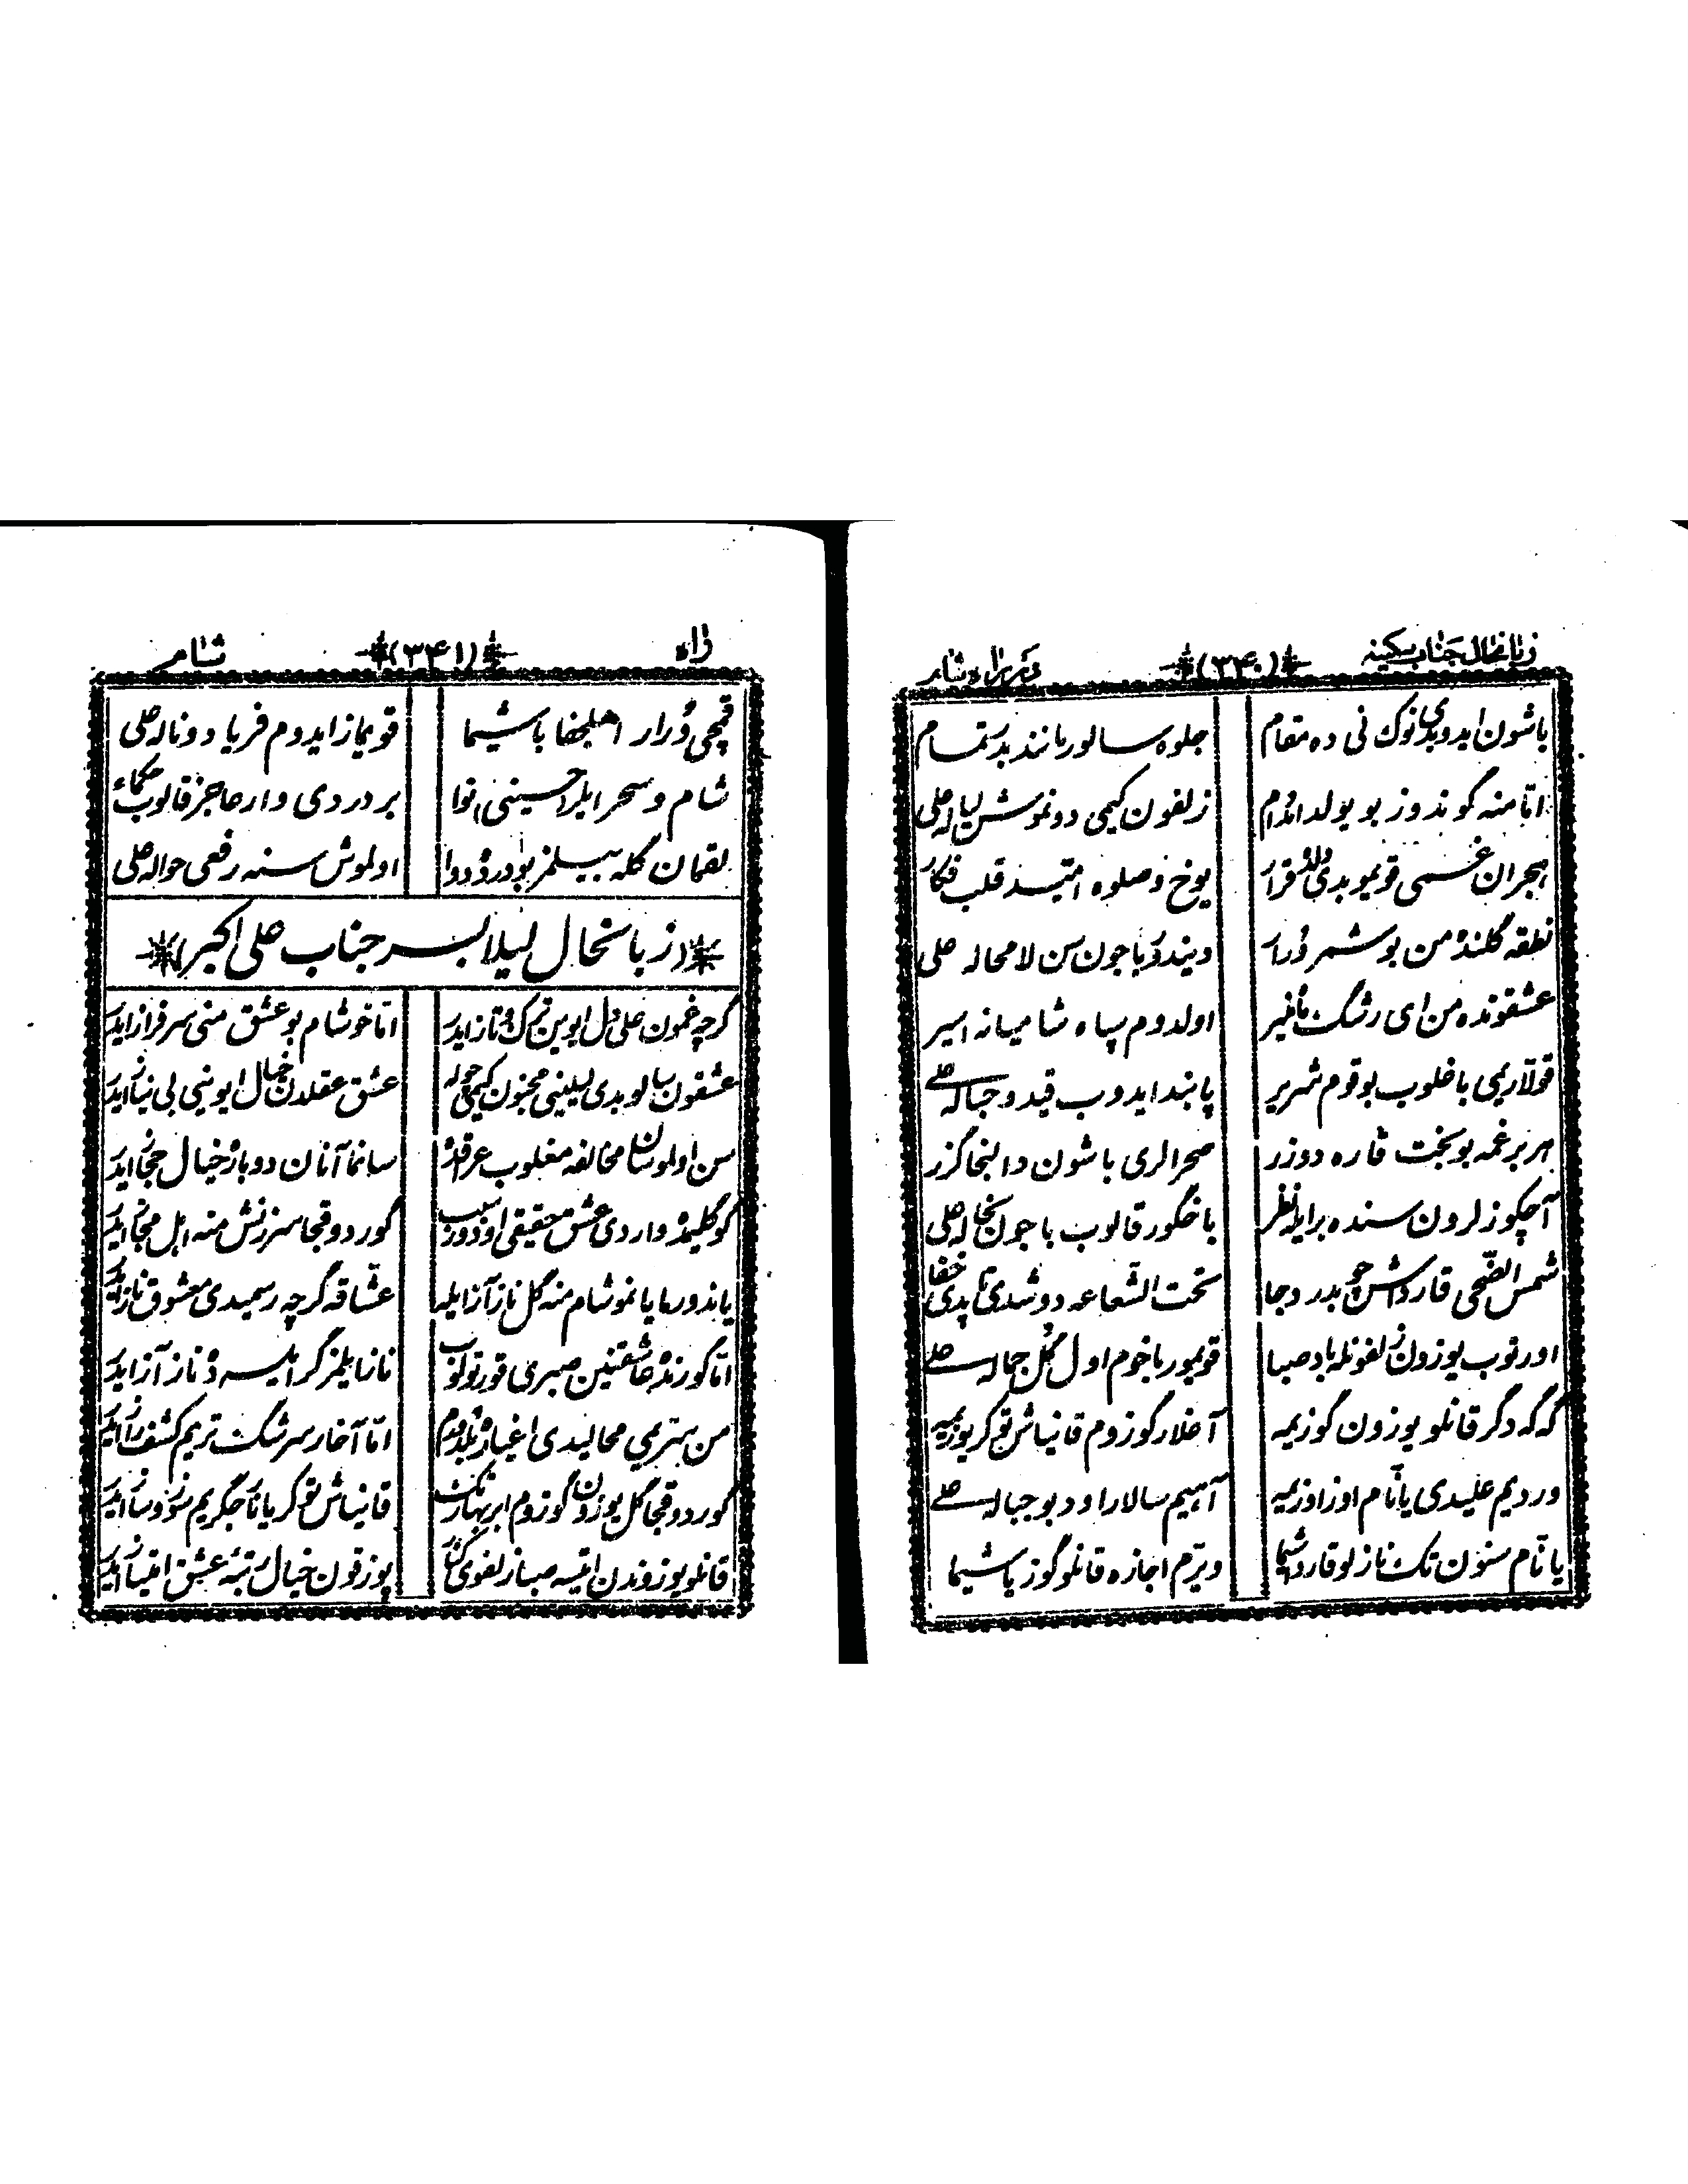 زبانحال جناب سکینه (۳۴۰) در راه شام
باشون ایدوبدی نوک نی ده مقام جلوه سالور مانند بدر تمام
امّا منه گوندوز بو یولدا اؤلدم زلفون کیمی دونموش لیاله علی
هجران غمی قویموبدی دلده قرار یوخ وصلوه امّید قلب فکار
نطقه گلنده من بو شمر وُرار دیندُر باجون سن لامحاله علی
عشقونده من ای رشگ ماه منیر اولدوم سپاه شامیانه اسیر
قوللاریمی باغلوب بو قوم شریر پابند ایدوب قید و حباله علی
هر بر غمه بو بخت قاره دوزر صحرالری باشون دالنجا گزر
آچ گوزلرون سنده بر ایله نظر باخگور قالوب باجون نه حاله علی
شمس الضّحی قارداش چو بدر دجا تحت الشّعاعه دوشدی تاپدی خفا
اورتوب یوزون زلفونله باد صبا قویمور باخوم اول گل جماله علی
گه گه دگر قانلو یوزون گوزیمه آغلار گوزوم قانیاش توکر یوزیمه
وردیم علیدی یاتّام اوز اوزیمه آهیم سالار اود بو جباله علی
یاتّام سنون تک نازلو قارداشیما ویرّم اجازه قانلو گوز یاشیما
راه (۳۴۱) شام
قمچی وُرار اهل جفا باشیما قویماز ایدوم فریاد و ناله علی
شام و سحر ایلر حسینی نوا بر دردی وار عاجز قالوب حکماء
لقمان گله بیلمز بو درده دوا اولموش سنه رفعی حواله علی
(زبانحال لیلا بسر جناب علی اکبر)
گرچه غمون علی دل ایوین ترک و تاز ایدر امّا خوشام بو عشق منی سرفراز ایدر
عشقون سالوبدی لیلینی مجنون کیمی چوله عشق عقلدن خیال ایوینی بی نیاز ایدر
سن اولموسان مخالفه مغلوب عراقده سانما آنان دوباره خیال حجاز ایدر
گوگلیمده واردی عشق حقیقی اوذور سبب گوردوقجا سرزنش منه اهل مجاز ایدر
یاندورسا یانموشام منه گل ناز آز ایله عشّاقه گرچه رسمیدی معشوق ناز ایدر
امّا گورنده عاشقنین صبری قورتولوب ناز ایلمز گر ایلسه ده ناز آز ایدر
من سرّیمی محالیدی اغیاره بلدورم امّا آخار سرشگ تریم کشف راز ایدر
گوردوقجا گل یوزون گوزوم ابر بهار تک قانیاش توکر یانار جگریم سوز و ساز ایدر
قانلو یوزوندن اتسه صبا زلفوی کنار یوزقون خیال رتبۀ عشق امتیاز ایدر